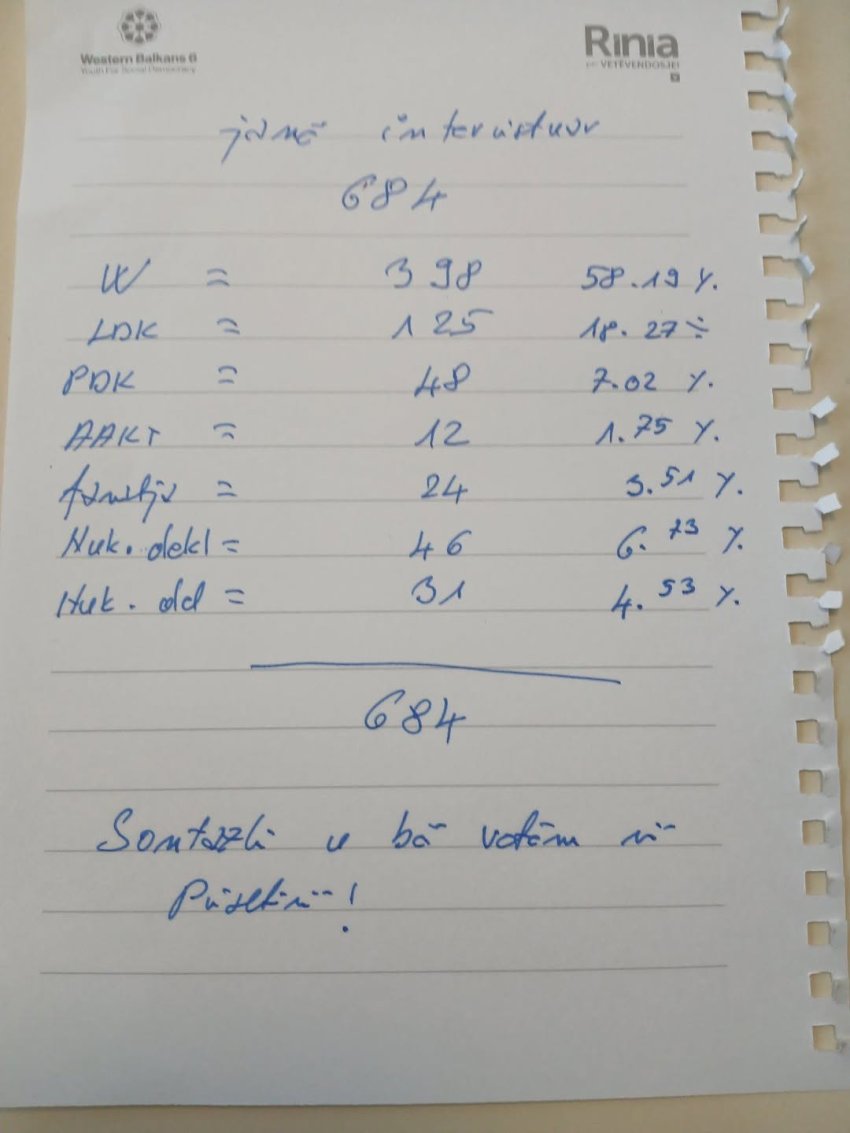 Western Balkans 6
Youth For Social Democracy
Rinia
VETËVENDOSJE!
janë intervistuar
684
VV = 398 58.19 %.
LDK = 125 18.27 ÷
PDK = 48 7.02 %.
AAKT = 12 1.75 %.
= 24 3.51 %.
Nuk. dekl = 46 6.73 %.
Nuk. dd = 31 4.53 %.
684
Sondazhi u bë vetëm në
Prishtinë!